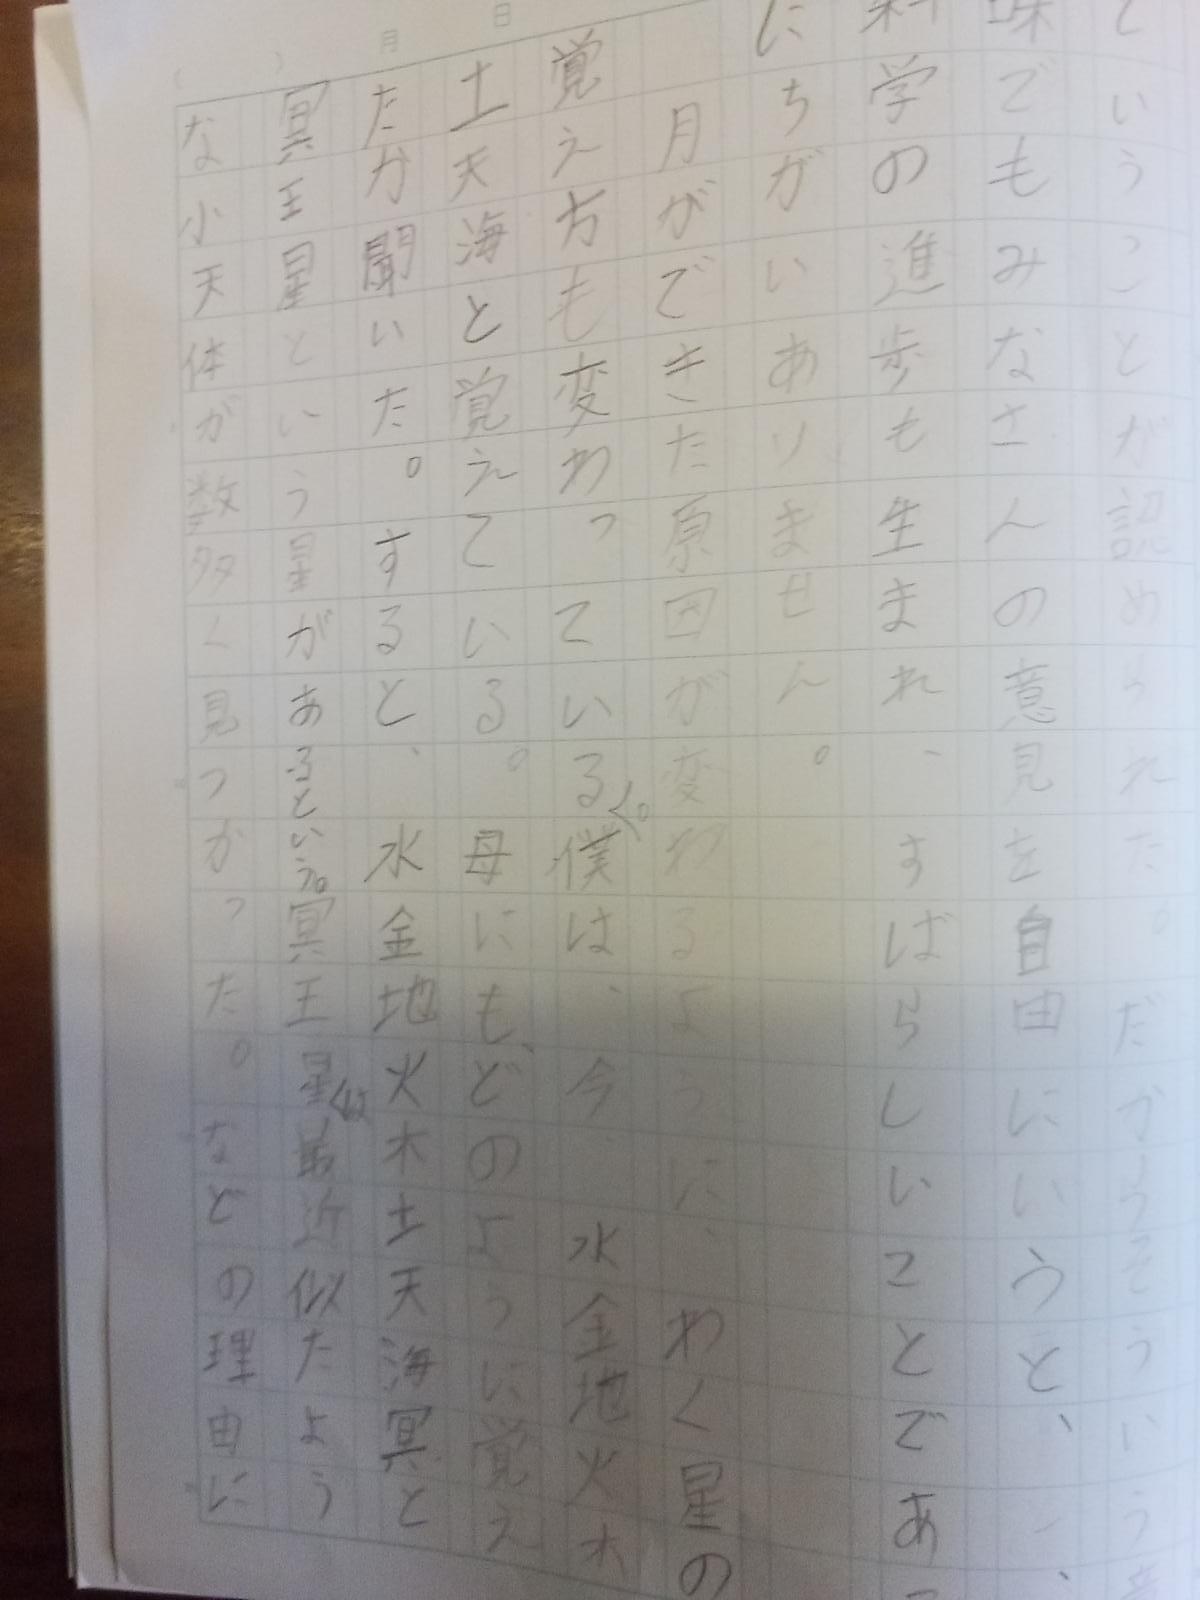 日
月
ということが認められた。だからそういう意
味でもみなさんの意見を自由にいうと、
科学の進歩も生まれ、すばらしいことであっ
にちがいありません。
月ができた原因が変わるように、わく星の
覚え方も変わっている。僕は、今、水金地火木
土天海と覚えている。母にも、どのように覚え
たか聞いた。すると、水金地火木土天海冥と
冥王星という星があるという。冥王星は最近似たよう
な小天体が数多く見つかった。などの理由に